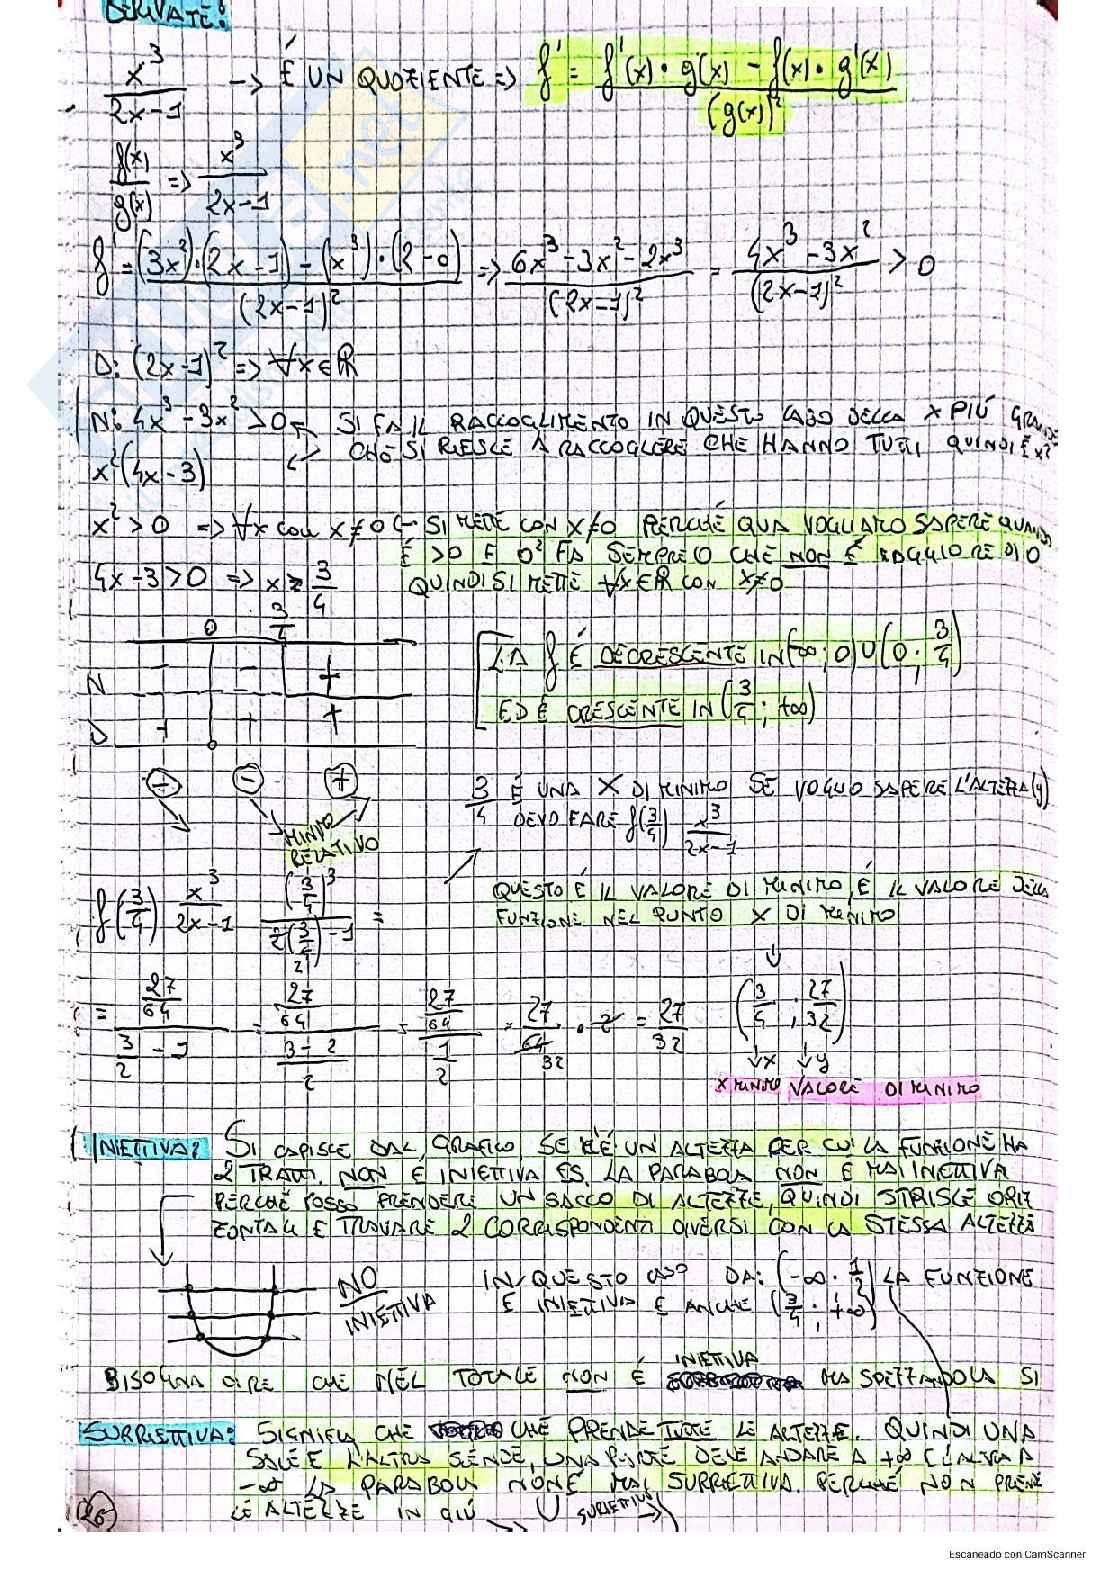 DERIVATE:
x³/(2x-1) -> É UN QUOZIENTE => f' = (f'(x)·g(x) - f(x)·g'(x))/(g(x))²
f(x)/g(x) => x³/(2x-1)
f' = ((3x²)·(2x-1) - (x³)·(2-0))/(2x-1)² => (6x³-3x²-2x³)/(2x-1)² = (4x³-3x²)/(2x-1)² > 0
D: (2x-1)² => ∀x∈R
N: 4x³-3x²>0 SI FA IL RACCOGLIMENTO IN QUESTO CASO DELLA X PIÚ GRANDE
x²(4x-3) CHE SI RIESCE A RACCOGLERE CHE HANNO TUTTI, QUINDI É x²
x²>0 => ∀x con x≠0 <- SI METTE CON X≠0 PERCHÉ QUA VOGLIAMO SAPERE QUANDO
É >0 E 0² FA SEMPRE 0 CHE NON É MAGGIORE DI 0
4x-3>0 => x≥3/4 QUINDI SI METTE ∀x∈R CON X≠0
0 3/4
N - - +
D + + +
- - +
LA f É DECRESCENTE IN (-∞;0)U(0;3/4)
ED É CRESCENTE IN (3/4;+∞)
MINIMO
RELATIVO
3/4 É UNA X DI MINIMO SE VOGLIO SAPERE L'ALTEZZA (y)
DEVO FARE f(3/4) x³/(2x-1)
f(3/4) x³/(2x-1) (3/4)³/(2(3/4)-1) =
QUESTO É IL VALORE DI MINIMO, É IL VALORE DELLA
FUNZIONE NEL PUNTO X DI MINIMO
= (27/64)/(3/2-1) = (27/64)/((3-2)/2) = (27/64)/(1/2) = 27/64 · 2 = 27/32 (3/4;27/32)
x y
X MINIMO VALORE DI MINIMO
INIETTIVA: SI CAPISCE DAL GRAFICO, SE C'É UN ALTEZZA PER CUI LA FUNZIONE HA
2 TRATTI, NON É INIETTIVA ES. LA PARABOLA NON É MAI INIETTIVA
PERCHÉ POSSO PRENDERE UN SACCO DI ALTEZZE, QUINDI STRISCE ORIZ
ZONTALI E TROVARE 2 CORRISPONDENTI DIVERSI CON LA STESSA ALTEZZA
NO
INIETTIVA
IN QUESTO CASO DA: (-∞;1/2) LA FUNZIONE
É INIETTIVA E ANCHE (3/4;+∞)
BISOGNA DIRE CHE NEL TOTALE NON É INIETTIVA MA SPEZZANDOLA SI
SURRIETTIVA: SIGNIFICA CHE CHE PRENDE TUTTE LE ALTEZZE. QUINDI UNA
SALE E L'ALTRA SCENDE, UNA PARTE DEVE ANDARE A +∞ E L'ALTRA A
-∞ LA PARABOLA NON É MAI SURRIETTIVA, PERCHÉ NON PRENDE
LE ALTEZZE IN GIÚ
SURIETTIVA
26
Escaneado con CamScanner